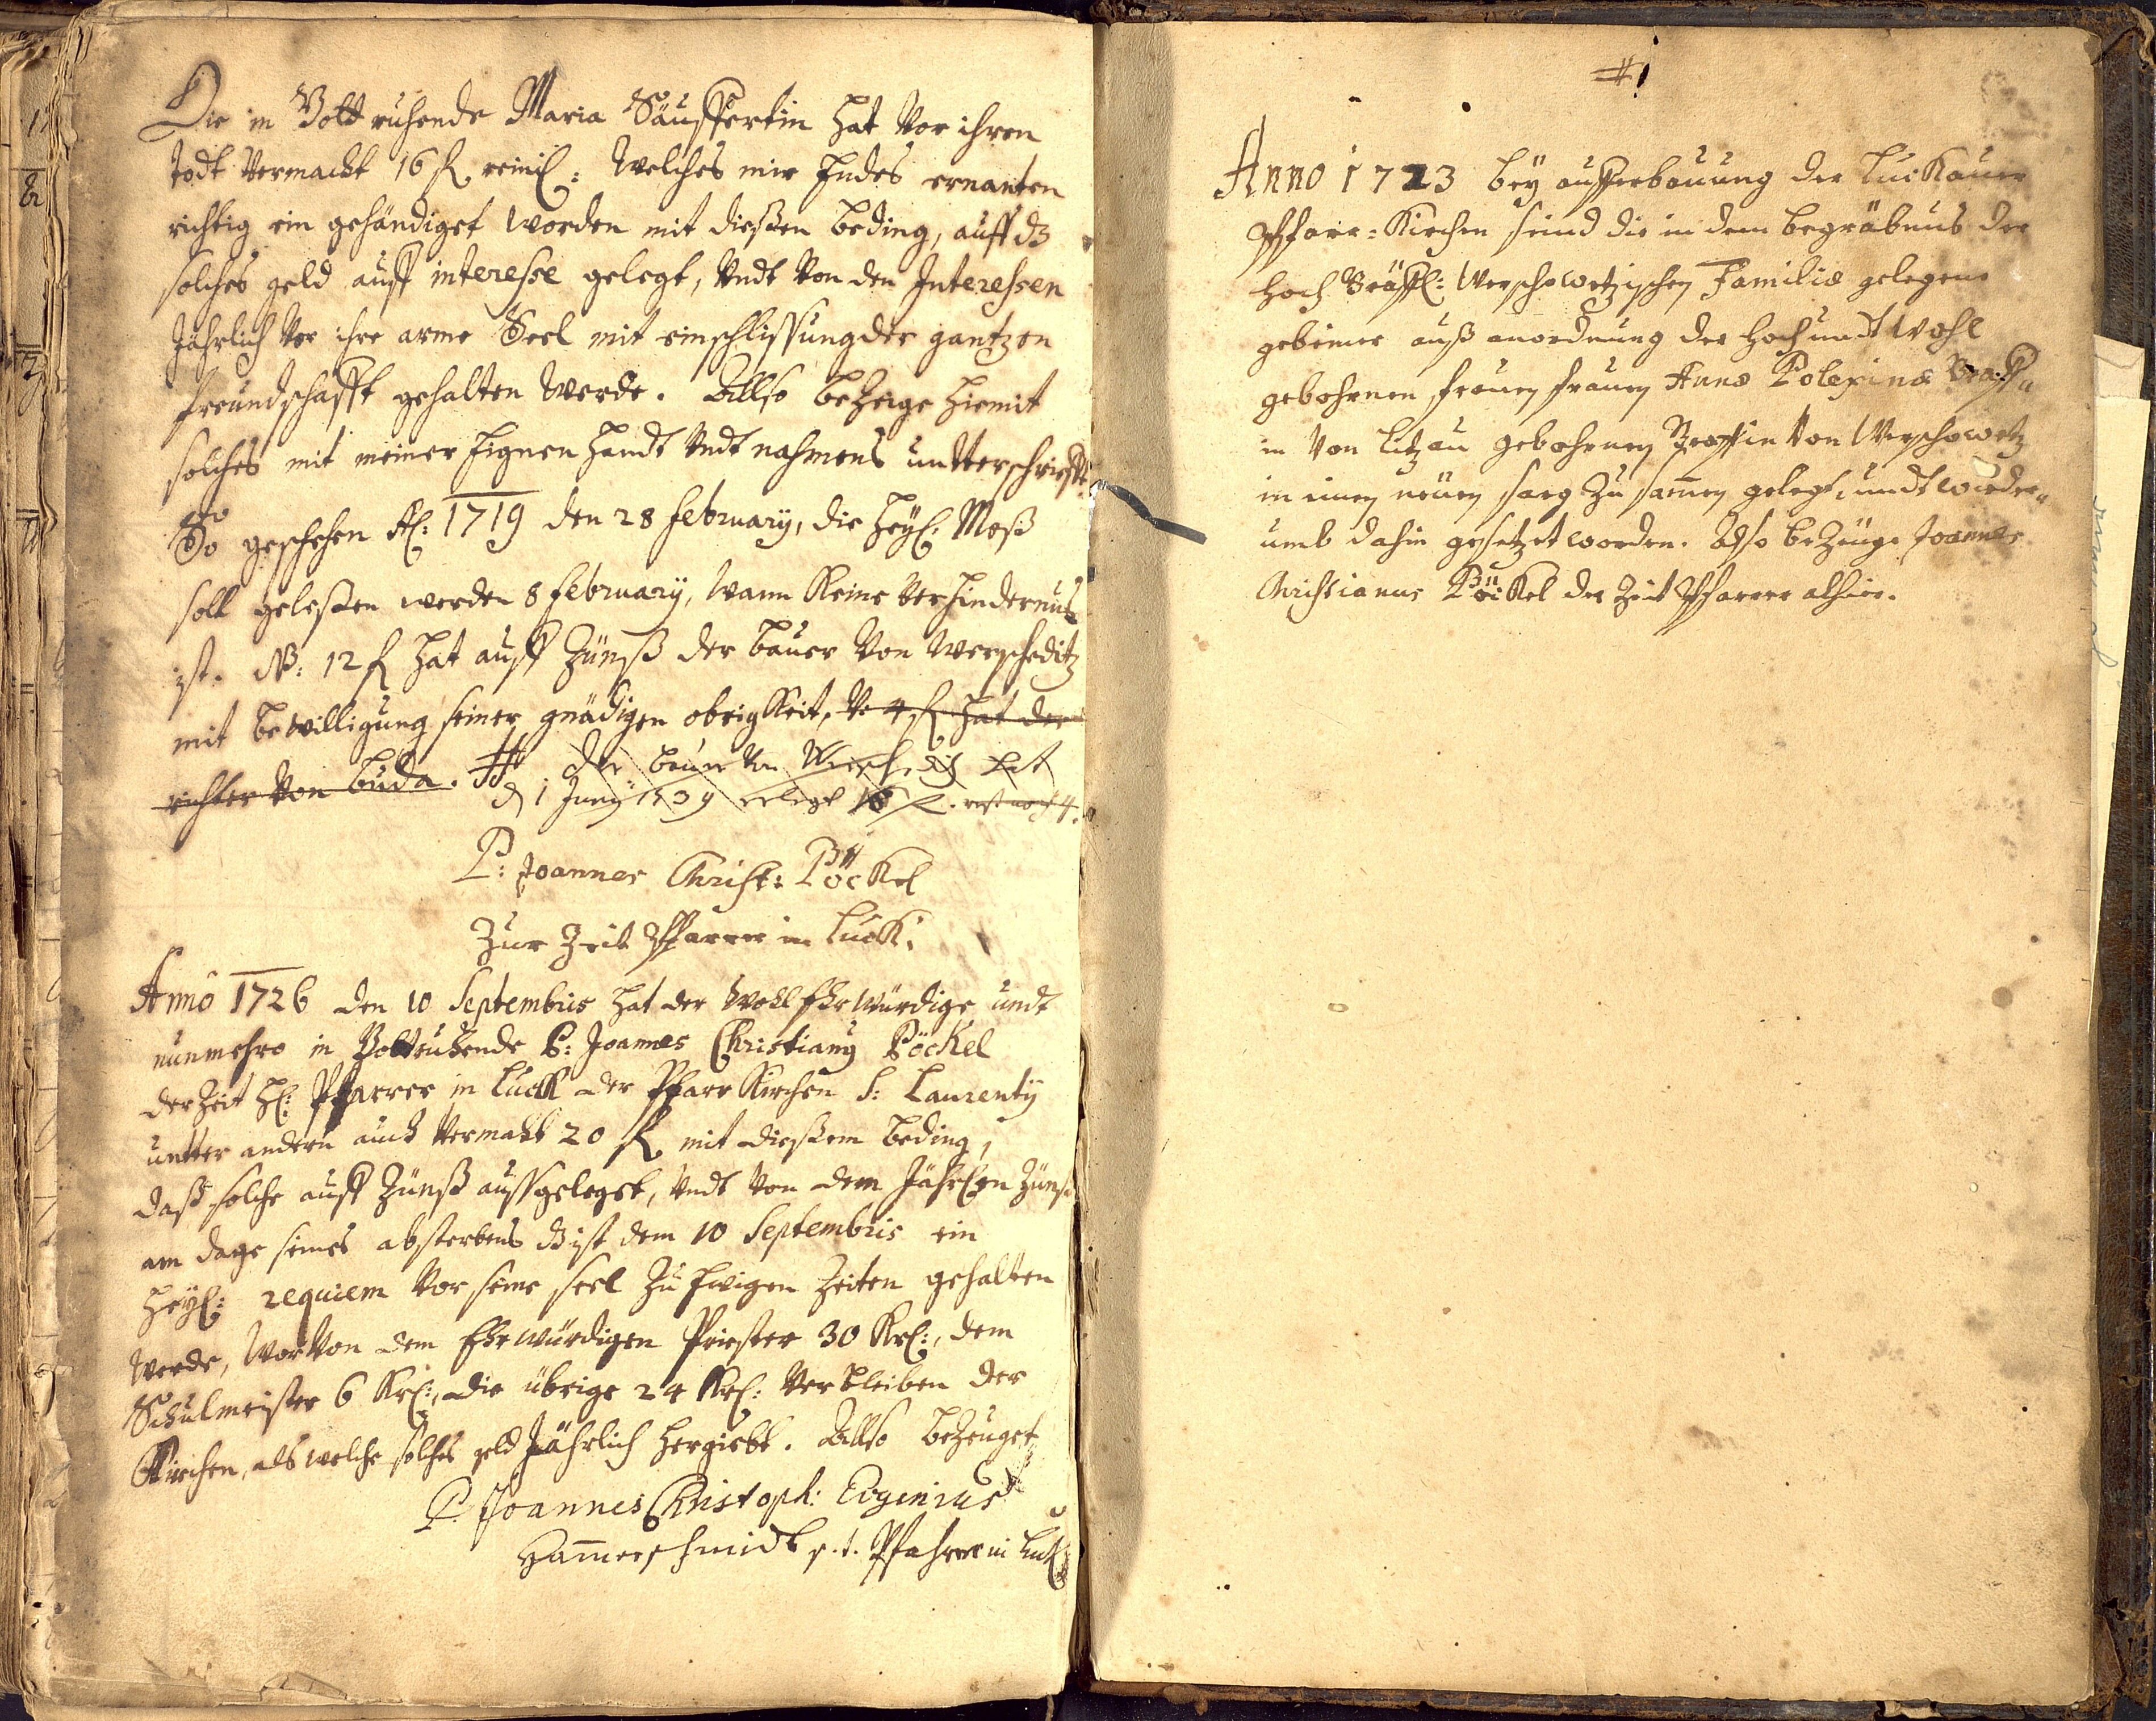 Die in Gott ruhende Maria Säuffertin hat Vor ihren
todt Vermacht 16 fl reinl: Welches mir Endes ernanten
richtig ein gehändiget worden mit dießen beding, auff dz
solches geld auff interesse gelegt, Vndt Von den Interessen
Jährlich Vor ihre arme Seel mit einschlissung der gantzen
freundschafft gehalten werde. Allso beZeige hiemit
solches mit meiner Eignen handt Vndt nahmens untterschriefft
So geschehen Al: 1719 den 28 february, die heyl: Meß
soll geleßen werden 8 february, wann Keine Verhindernus
ist. NB: 12 fl hat auff Zünß der bauer Von Werscheditz
mit bewilligung seiner gnädigen obrigkeit, Vo 4 fl hat der
richter Von buda. # der bauer Von Werscheditz hat
d 1 Juny 1739 erlegt 18 fl. rest noch 4.
P: Joannes Christ: Pöckel
Zur Zeit Pfarrer in Luck.
Anno 1726 den 10 Septembris hat der WohlEhrwürdige undt
nunmehro in Gottruhende P: Joannes Christiany Pöckel
der Zeit H: Pfarrer in Luck der PfarrKirchen S: Laurenty
untter andern auch Vermacht 20 fl mit dießem beding,
daß solche auff Zünß aussgeleget, Vndt Von dem Jährlen Zünß
am dage seines absterbens dz ist dem 10 Septembris ein
heyl: requiem Vor seine seel Zu Ewigen Zeiten gehalten
werde, WorVon dem Ehrwürdigen Priester 30 Krl:, dem
Schulmeister 6 Krl:, die übrige 24 Krl: Verbleiben der
Kirchen, als welche solches geld Jährlich hergiebt. Allso beZeuget
P. Joannes Christoph: Eugenius
Hamerschmidt p.t. Pfahrer in Luk
#1
Anno 1723 bey aufferbauung der Luckauer
Pfarr=Kirchen seind die in dem begräbnus der
hoch Gräffl: Werschowetzischen Familiæ gelegene
gebeiner auß anordnung der hoch undt wohl
gebohrnen frauen frauen Anna Polexina Gräff„
in Von Lützau gebohrnen Gräffin Von Werschowetz
in einen neuen sarg Zu samen gelegt, undt wieder„
umb dahin gesetzet worden. Also beZeuge Joannes
Christianus Pöckel der Zeit Pfarrer alhier.